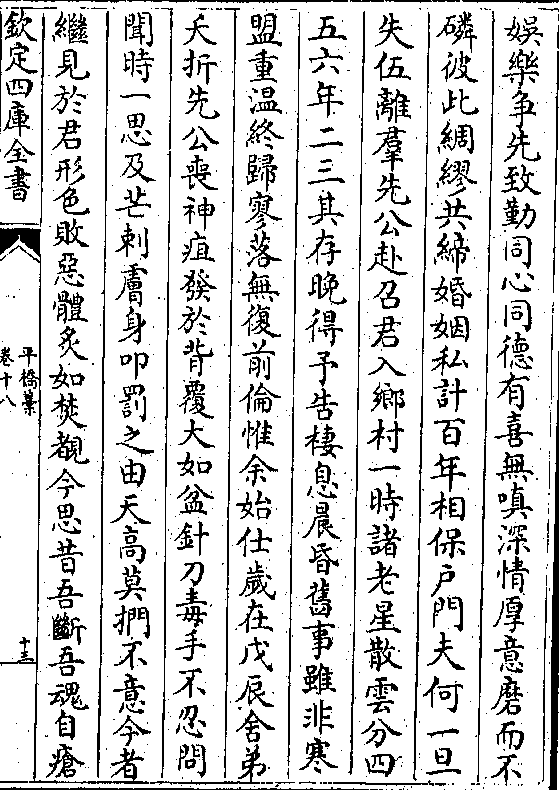 娯樂争先致勤同心同德有喜無嗔深情厚意磨而不
磷彼此綢繆共締婚姻私計百年相保戸門夫何一旦
失伍離羣先公赴召君入鄉村一時諸老星散雲分四
五六年二三其存晚得予告棲息晨昏舊事雖非寒
盟重温終歸寥落無復前倫惟余始仕歲在戊辰舍弟
夭折先公喪神疽發於背覆大如盆針刀毒手不忍問
聞時一思及芒刺膚身叩罰之由天高莫捫不意今者
繼見於君形色敗惡體炙如焚覩今思昔吾斷吾魂自瘡
欽定四庫全書
平橋藁
卷十八
十三